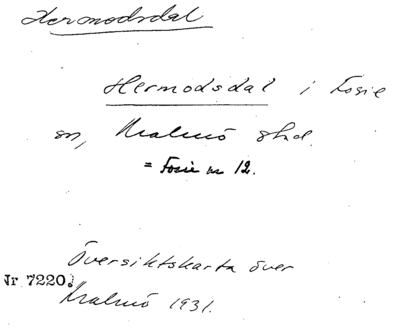 Hermodsdal
Hermodsdal i Fosie
sn, Malmö stad.
= Fosie nr 12.
Översiktskarta över
Nr 7220.
Malmö 1931.